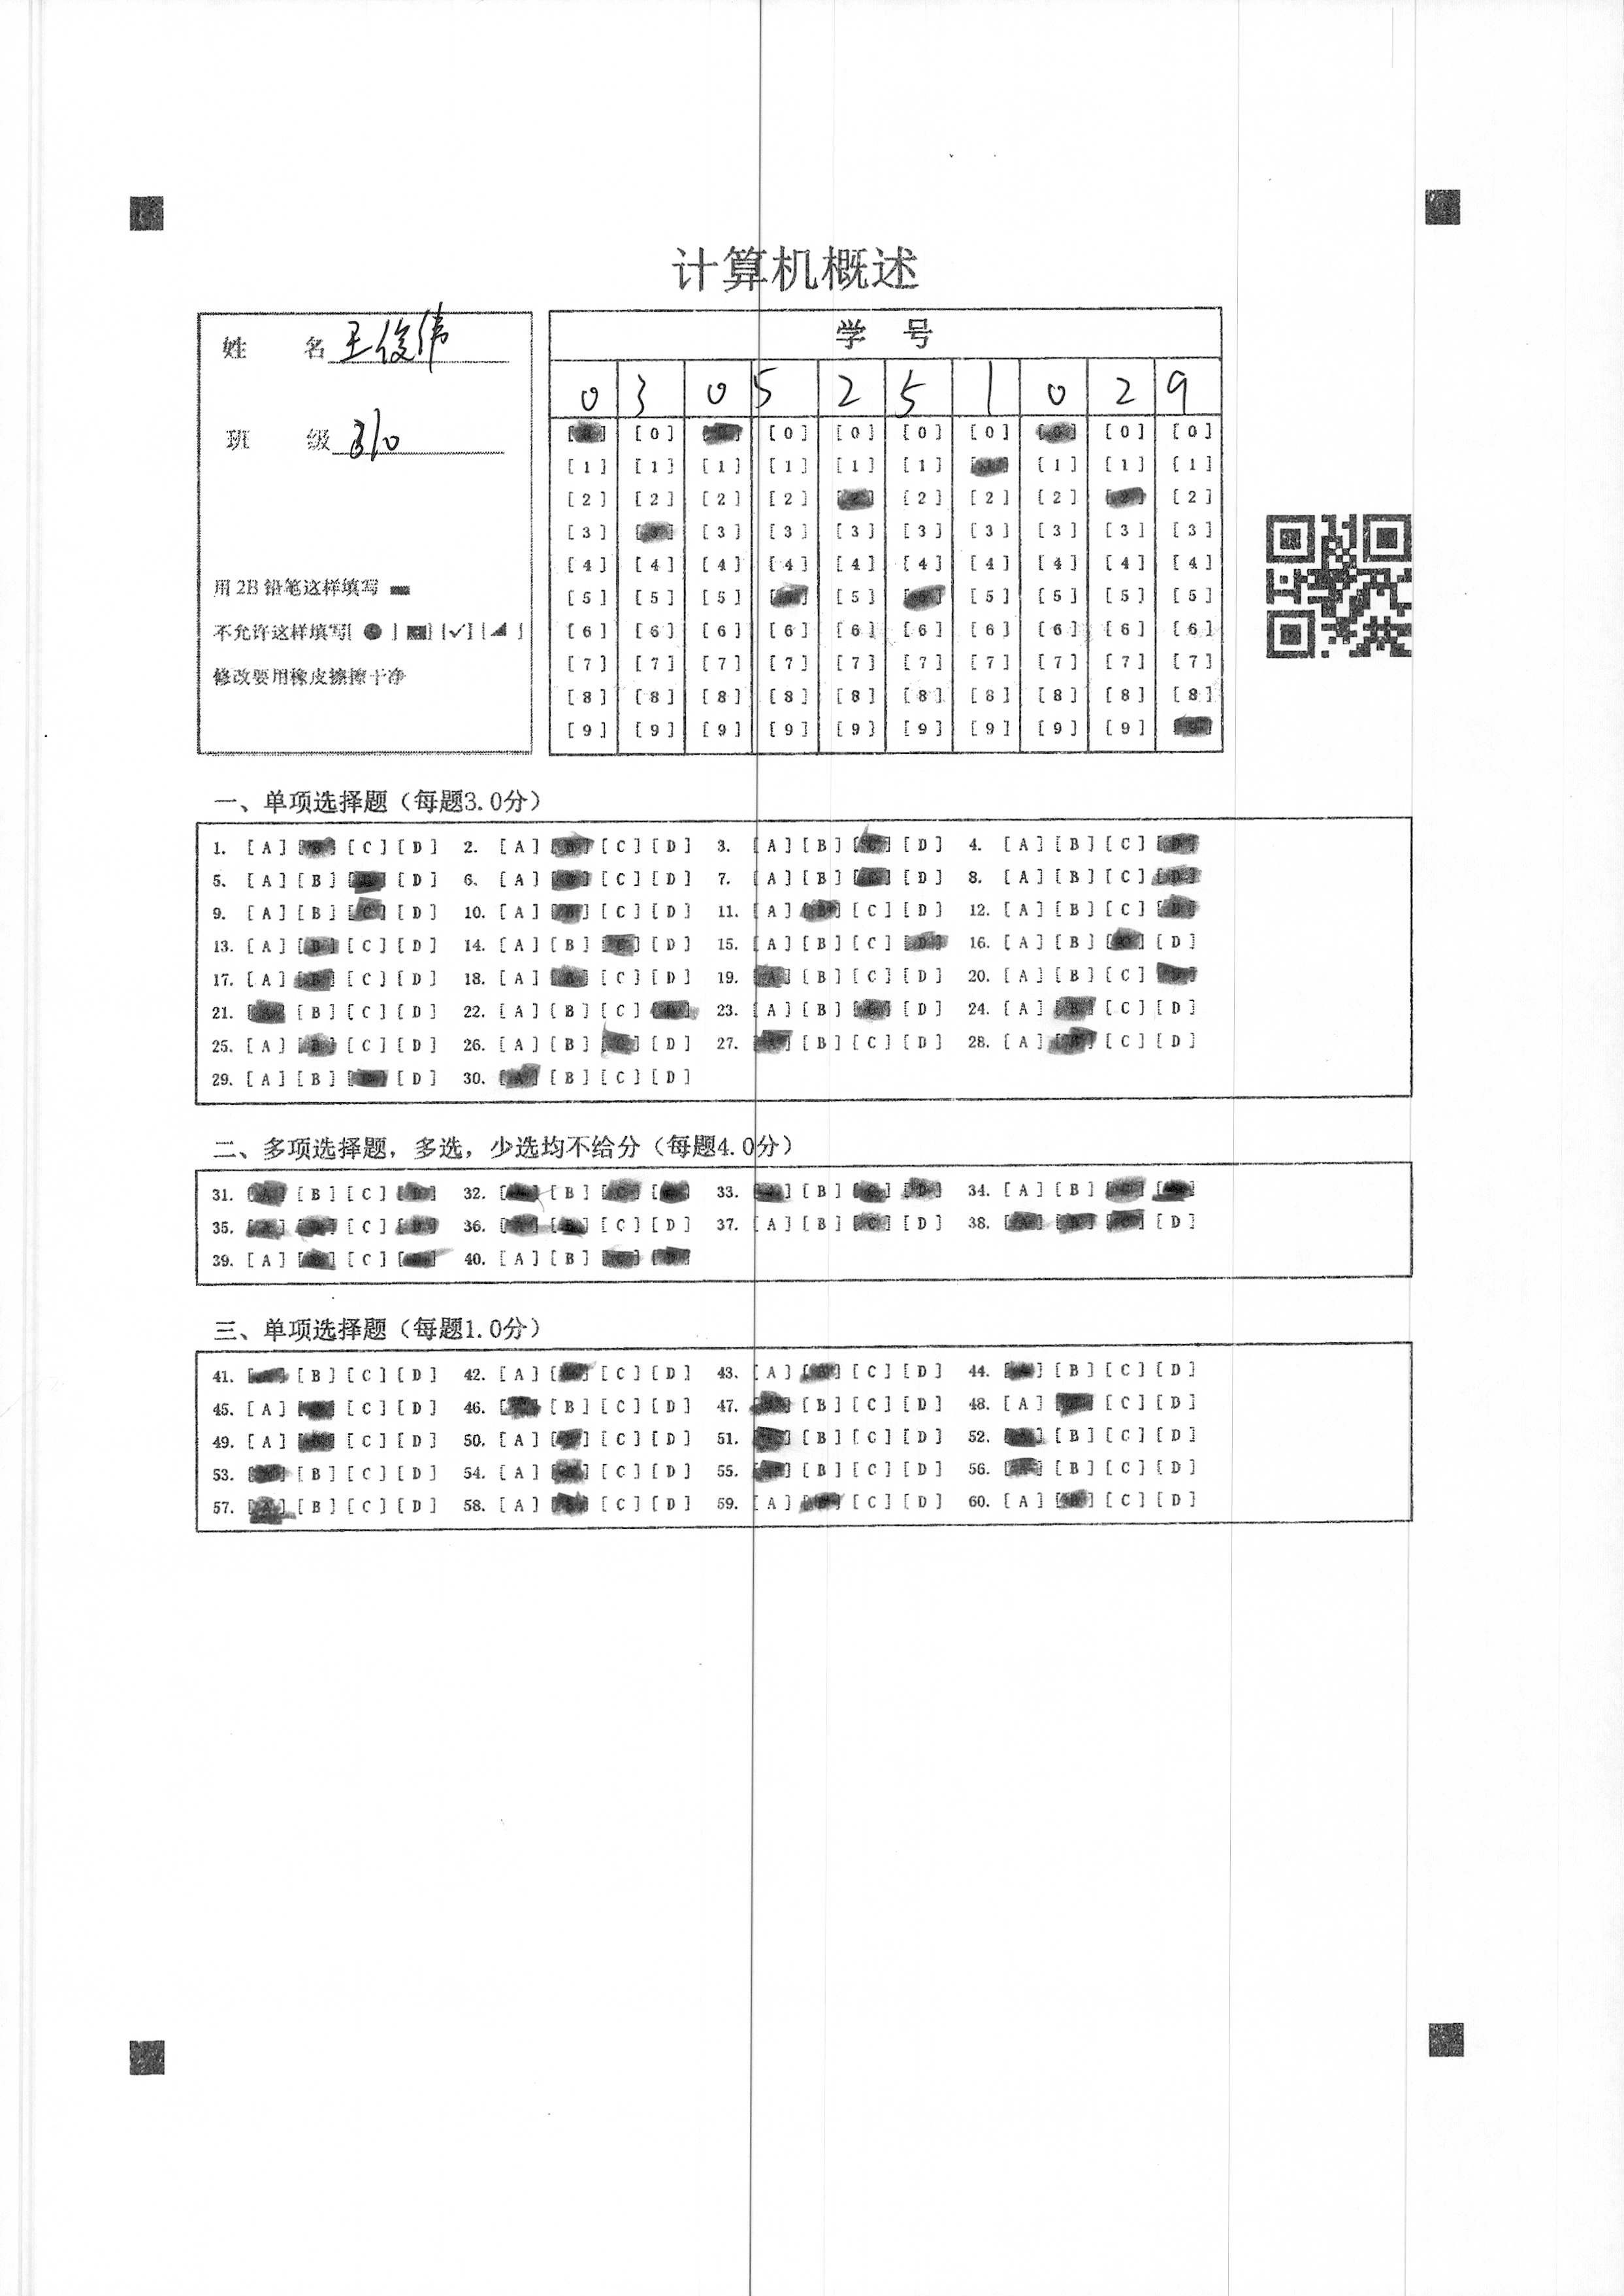 计算机概述
姓 名 王俊伟
班 级 310
用2B铅笔这样填写
不允许这样填写[ ● ] [■] [✓] [◢ ]
修改要用橡皮擦擦干净
学 号
0 3 0 5 2 5 1 0 2 9
[0] [0] [0] [0] [0] [0] [0] [0] [0] [0]
[1] [1] [1] [1] [1] [1] [1] [1] [1] [1]
[2] [2] [2] [2] [2] [2] [2] [2] [2] [2]
[3] [3] [3] [3] [3] [3] [3] [3] [3] [3]
[4] [4] [4] [4] [4] [4] [4] [4] [4] [4]
[5] [5] [5] [5] [5] [5] [5] [5] [5] [5]
[6] [6] [6] [6] [6] [6] [6] [6] [6] [6]
[7] [7] [7] [7] [7] [7] [7] [7] [7] [7]
[8] [8] [8] [8] [8] [8] [8] [8] [8] [8]
[9] [9] [9] [9] [9] [9] [9] [9] [9] [9]
一、单项选择题（每题3.0分）
1. [A] [B] [C] [D] 2. [A] [B] [C] [D] 3. [A] [B] [C] [D] 4. [A] [B] [C] [D]
5. [A] [B] [C] [D] 6. [A] [B] [C] [D] 7. [A] [B] [C] [D] 8. [A] [B] [C] [D]
9. [A] [B] [C] [D] 10. [A] [B] [C] [D] 11. [A] [B] [C] [D] 12. [A] [B] [C] [D]
13. [A] [B] [C] [D] 14. [A] [B] [C] [D] 15. [A] [B] [C] [D] 16. [A] [B] [C] [D]
17. [A] [B] [C] [D] 18. [A] [B] [C] [D] 19. [A] [B] [C] [D] 20. [A] [B] [C] [D]
21. [A] [B] [C] [D] 22. [A] [B] [C] [D] 23. [A] [B] [C] [D] 24. [A] [B] [C] [D]
25. [A] [B] [C] [D] 26. [A] [B] [C] [D] 27. [A] [B] [C] [D] 28. [A] [B] [C] [D]
29. [A] [B] [C] [D] 30. [A] [B] [C] [D]
二、多项选择题，多选，少选均不给分（每题4.0分）
31. [A] [B] [C] [D] 32. [A] [B] [C] [D] 33. [A] [B] [C] [D] 34. [A] [B] [C] [D]
35. [A] [B] [C] [D] 36. [A] [B] [C] [D] 37. [A] [B] [C] [D] 38. [A] [B] [C] [D]
39. [A] [B] [C] [D] 40. [A] [B] [C] [D]
三、单项选择题（每题1.0分）
41. [A] [B] [C] [D] 42. [A] [B] [C] [D] 43. [A] [B] [C] [D] 44. [A] [B] [C] [D]
45. [A] [B] [C] [D] 46. [A] [B] [C] [D] 47. [A] [B] [C] [D] 48. [A] [B] [C] [D]
49. [A] [B] [C] [D] 50. [A] [B] [C] [D] 51. [A] [B] [C] [D] 52. [A] [B] [C] [D]
53. [A] [B] [C] [D] 54. [A] [B] [C] [D] 55. [A] [B] [C] [D] 56. [A] [B] [C] [D]
57. [A] [B] [C] [D] 58. [A] [B] [C] [D] 59. [A] [B] [C] [D] 60. [A] [B] [C] [D]